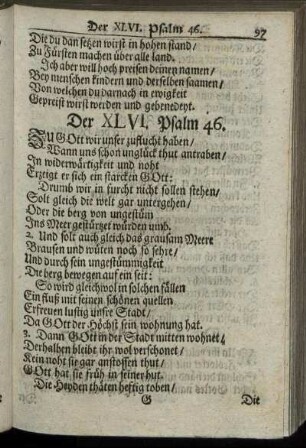 Der XLVI. Psalm 46. 97
Die du dan setzen wirst in hohen stand/
Zu Fürsten machen über alle land.
Ich aber will hoch preisen deinen namen/
Bey menschen kindern und derselben saamen/
Von welchen du darnach in ewigkeit
Gepreist wirst werden und gebenedeyt.
Der XLVI. Psalm 46.
ZU GOtt wir unser zuflucht haben/
Wann uns schon unglück thut antraben/
In widerwärtigkeit und noht
Erzeigt er sich ein starcken GOtt:
Drumb wir in furcht nicht sollen stehen/
Solt gleich die welt gar untergehen/
Oder die berg von ungestüm
Ins Meer gestürzet würden umb.
2. Und solt auch gleich das grausam Meere
Brausen und wüten noch so sehre/
Und durch sein ungestümmigkeit
Die berg bewegen auf ein seit:
So wird gleichwol in solchen fällen
Ein fluß mit seinen schönen quellen
Erfreuen lustig unser Stadt/
Da GOtt der Höchst sein wohnung hat.
3. Dann GOtt in der Stadt mitten wohnet/
Derhalben bleibt ihr wol verschonet/
Kein noht sie gar anstossen thut/
GOtt hat sie früh in seiner hut.
Die Heyden thäten heftig toben/
G Die